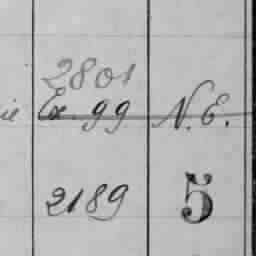 2801
ie Ex. 99 N.E.
2189 5